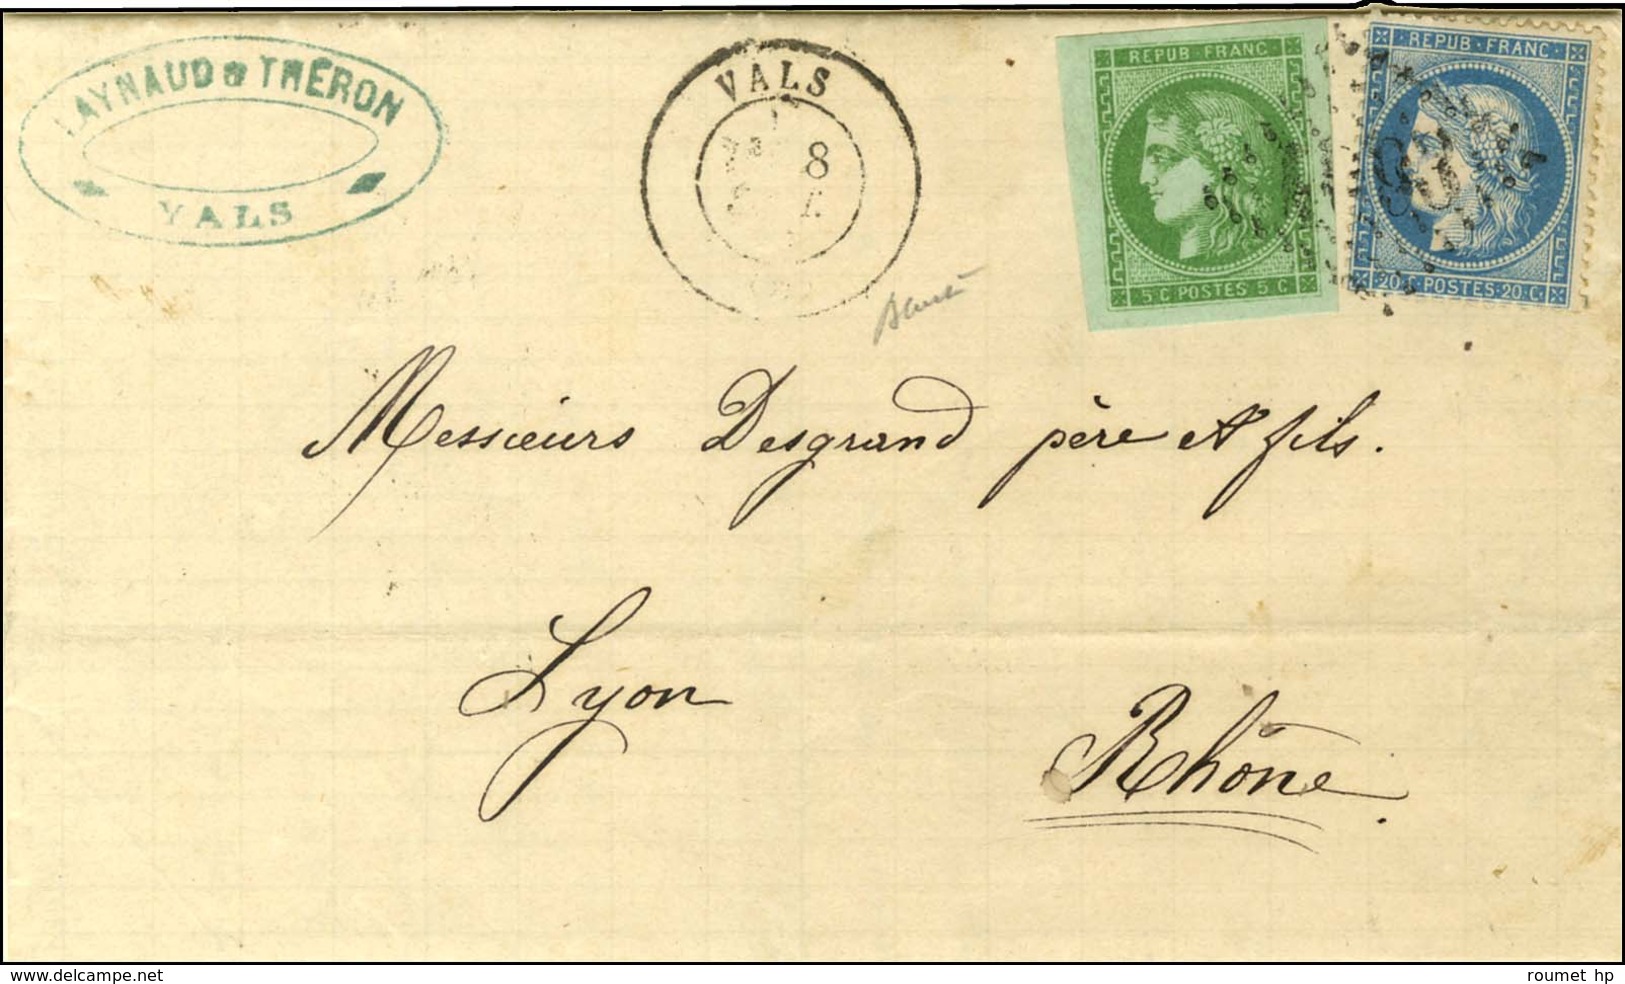 LAYNAUD & THÉRON
VALS
VALS
8
REPUB · FRANC
5 C POSTES 5 C
REPUB · FRANC
20 C POSTES 20 C
Messieurs Desgrand père et fils.
Lyon
Rhône
delcampe.net
roumet_hp